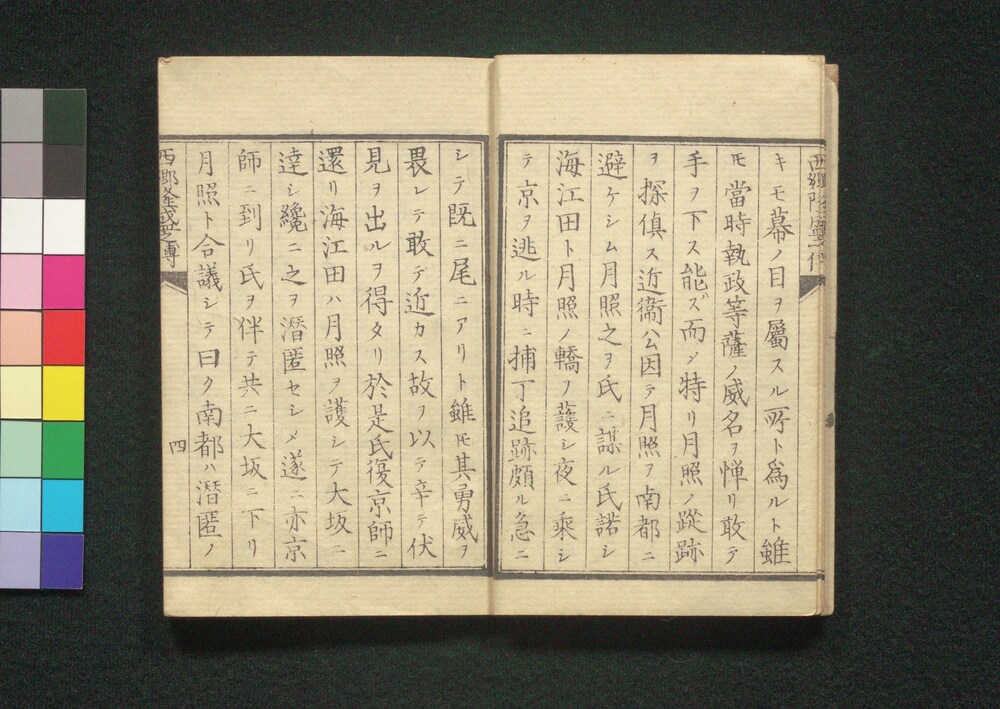 キモ幕ノ目ヲ屬スル所ト為ルト雖
モ當時執政等薩ノ威名ヲ憚リ敢テ
手ヲ下ス能ズ而シ特リ月照ノ蹤跡
ヲ探偵ス近衞公因テ月照ヲ南都ニ
避ケシム月照之ヲ氏ニ謀ル氏諾シ
海江田ト月照ノ轎ヲ護シ夜ニ乘シ
テ京ヲ逃ル時ニ捕丁追跡頗ル急ニ
シテ既ニ尾ニアリト雖モ其勇威ヲ
畏レテ敢テ近カス故ヲ以テ辛テ伏
見ヲ出ルヲ得タリ於是氏復京師ニ
還リ海江田ハ月照ヲ護シテ大坂ニ
逹シ纔ニ之ヲ潛匿セシメ遂ニ亦京
師ニ到リ氏ヲ伴テ共ニ大坂ニ下リ
月照ト合議シテ曰ク南都ハ潛匿ノ
西郷隆盛之傳
四